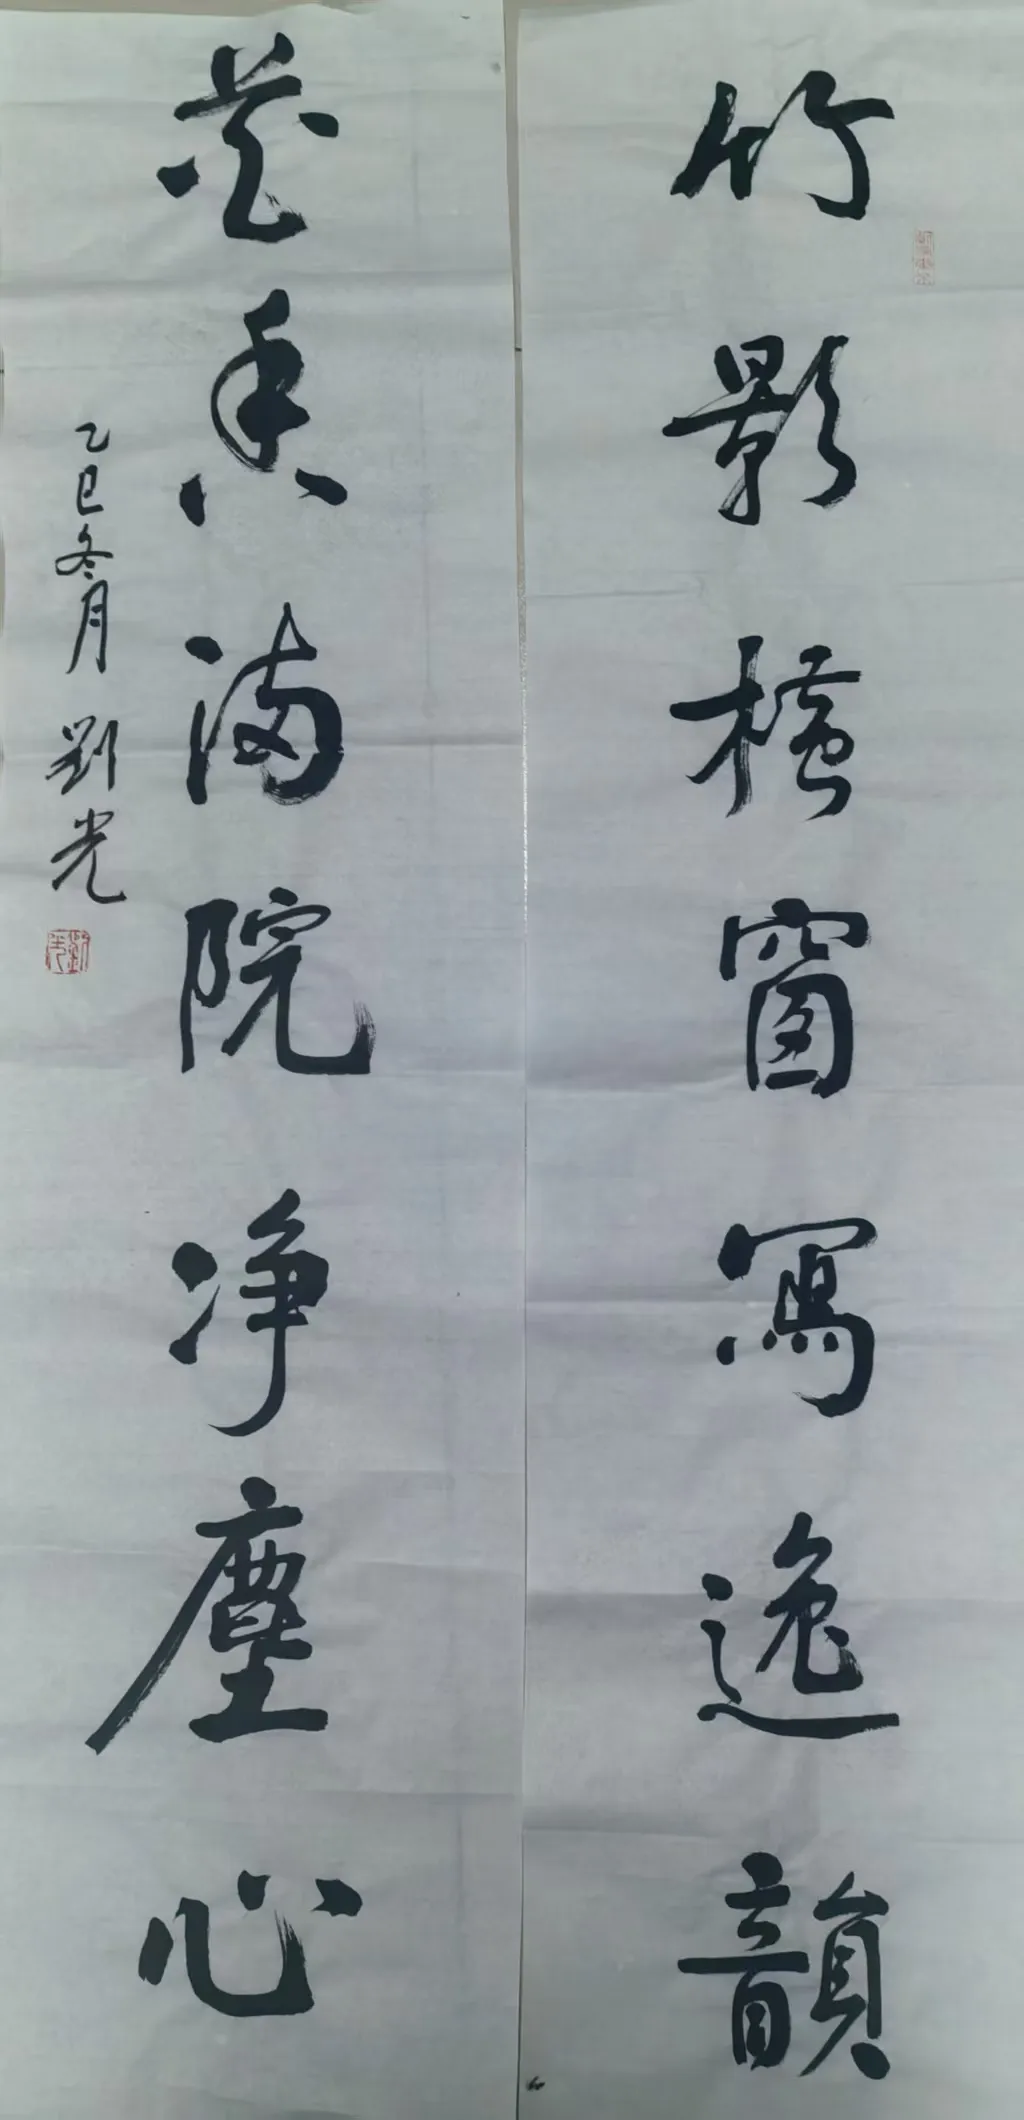 竹影橫窗寫逸韻
花香滿院淨塵心
乙巳冬月 劉光